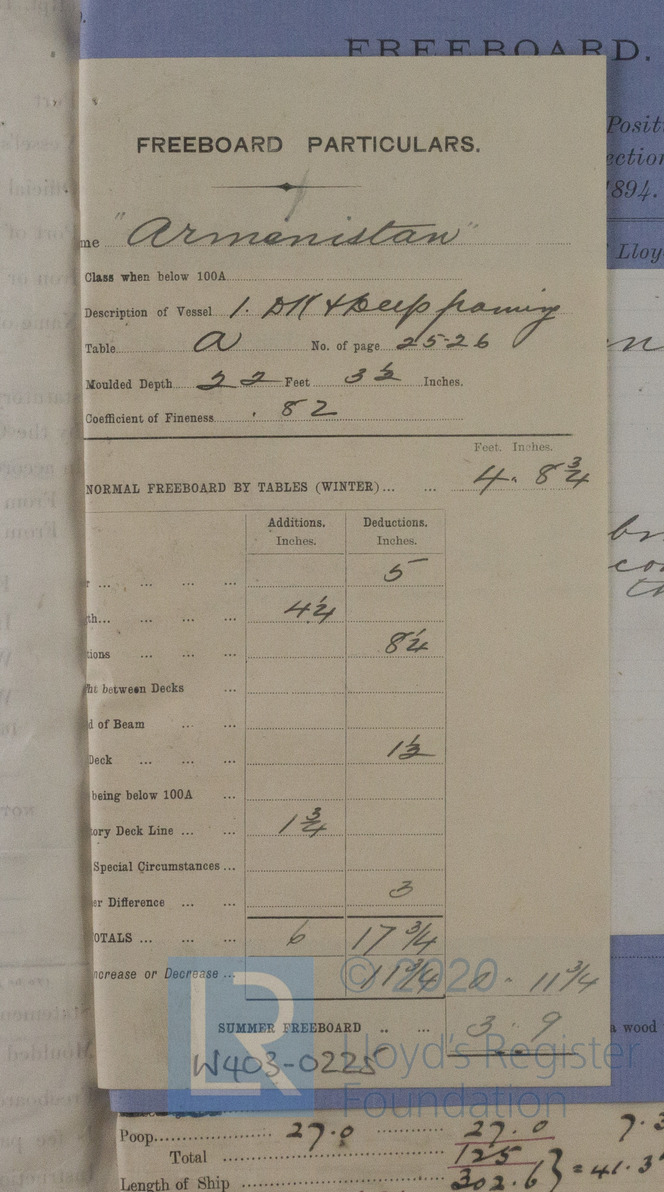 FREEBOARD.
FREEBOARD PARTICULARS.
me "Armenistan"
Class when below 100A
Description of Vessel 1. DK & Deep framing
Table a No. of page 25-26
Moulded Depth 22 Feet 3½ Inches.
Coefficient of Fineness .82
Feet. Inches.
NORMAL FREEBOARD BY TABLES (WINTER)... ... 4. 8¾
Additions. Deductions.
Inches. Inches.
r ... ... ... ... 5
th... ... ... ... 4¼
tions ... ... ... 8¼
ht between Decks ...
d of Beam ... ...
Deck ... ... ... 1½
being below 100A ...
ory Deck Line ... ... 1¾
Special Circumstances ...
er Difference ... ... 3
OTALS ... ... ... 6 17 3/4
ncrease or Decrease ... 11 3/4 0 - 11 3/4
SUMMER FREEBOARD .. ... 3. 9
W403-0225
© 2020
Lloyd's Register
Foundation
LR
Positi
ection
1894.
Lloy
a wood
Poop 27.0 27.0 7.3
Total 125
Length of Ship 302.6 } = 41.3